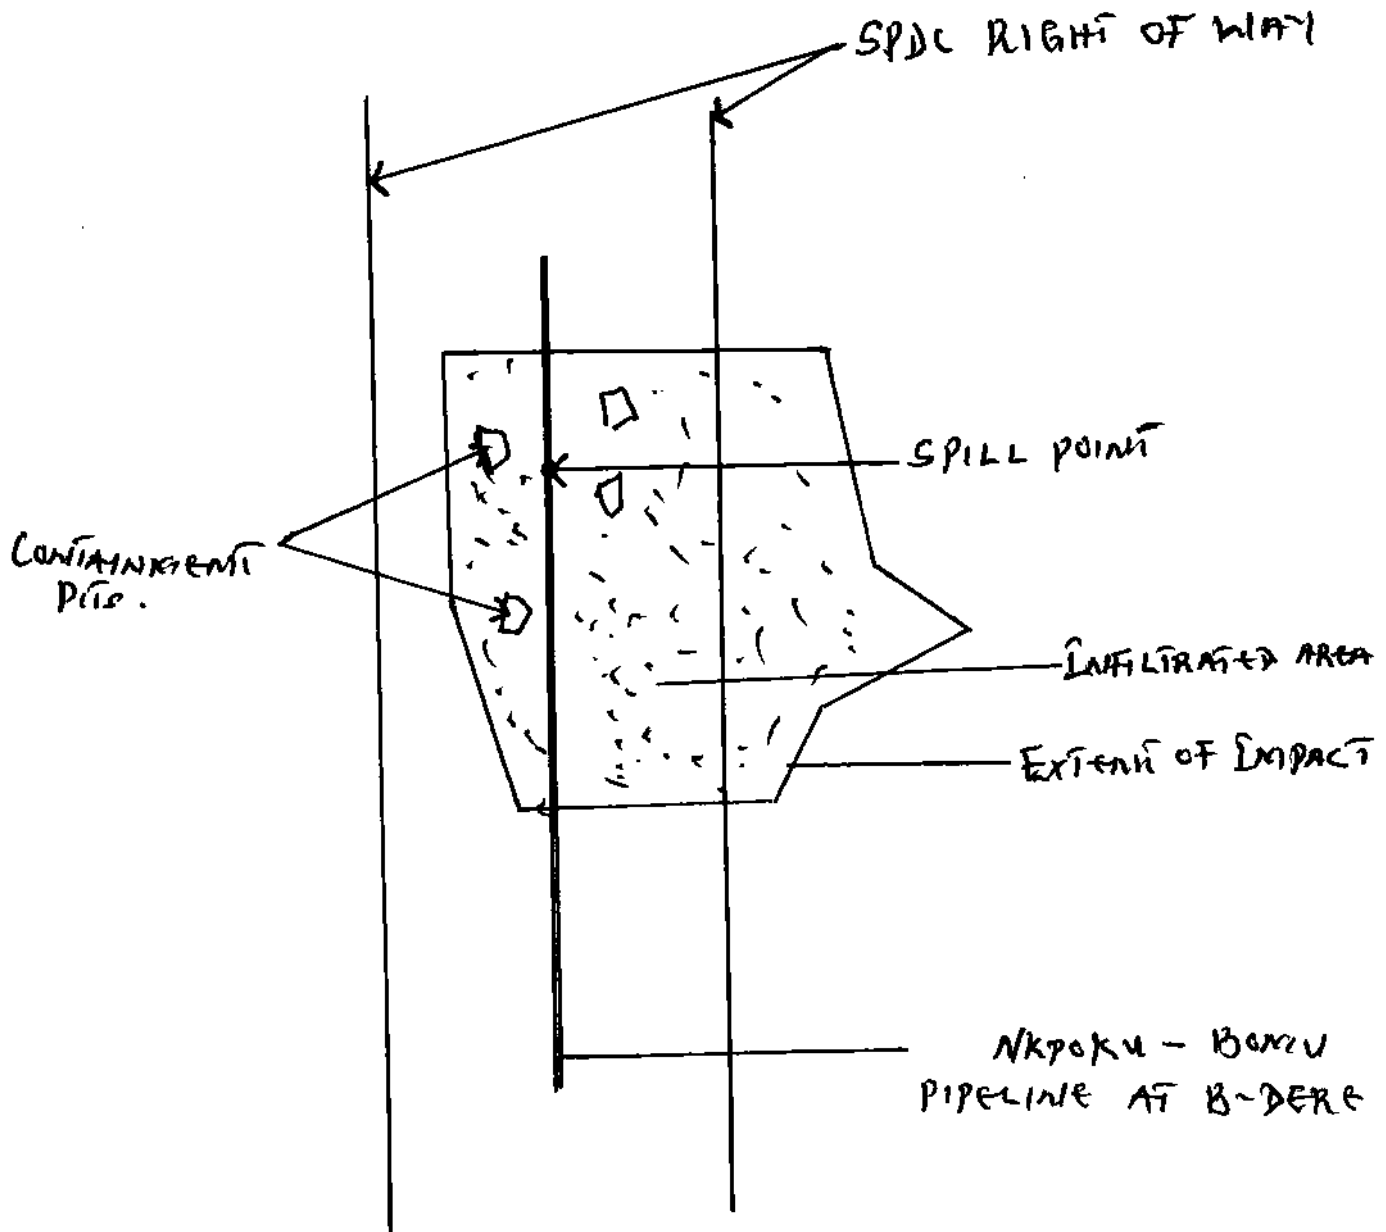 SPDC RIGHT OF WAY
SPILL POINT
CONTAINMENT
PITS.
INFILTRATED AREA
EXTENT OF IMPACT
NKPOKU - BOMU
PIPELINE AT B-DERE